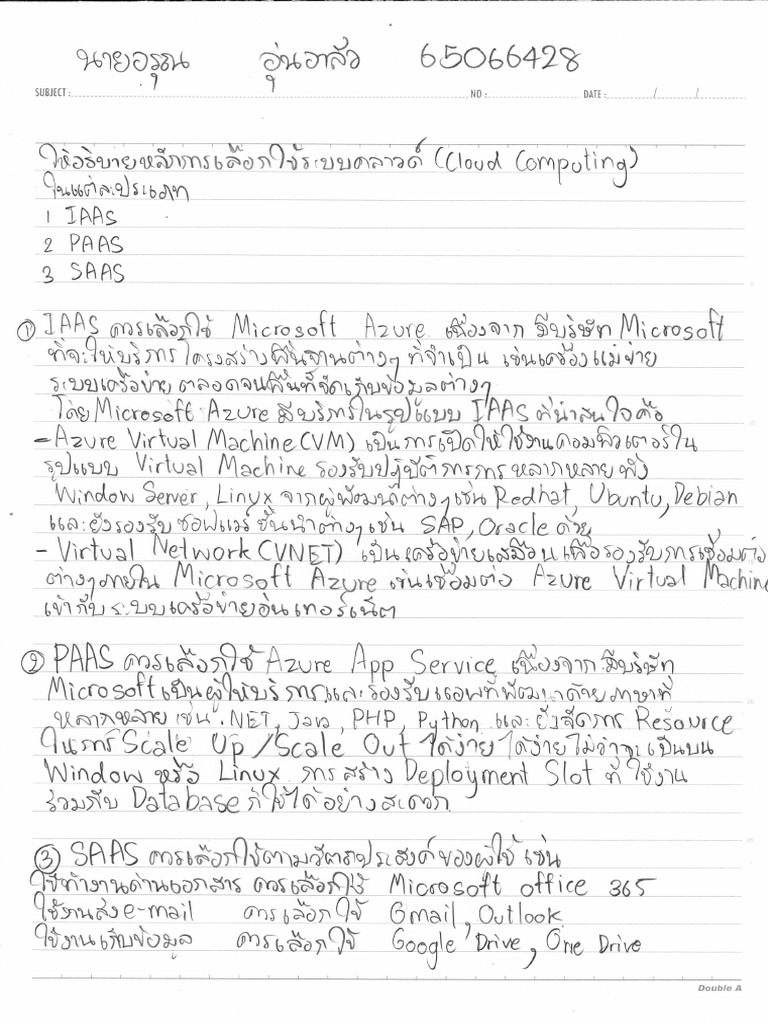 นายอรุณ อุ่นอาสัว 65066428
SUBJECT : NO : DATE : / /
ให้อธิบายหลักการเลือกใช้ระบบคลาวด์ (Cloud Computing)
ในแต่ละประเภท
1 IAAS
2 PAAS
3 SAAS
① IAAS ควรเลือกใช้ Microsoft Azure เนื่องจาก มีบริษัท Microsoft
ที่จะให้บริการโครงสร้างพื้นฐานต่างๆ ที่จำเป็น เช่นเครื่องแม่ข่าย
ระบบเครือข่าย ตลอดจนพื้นที่จัดเก็บข้อมูลต่างๆ
โดย Microsoft Azure มีบริการในรูปแบบ IAAS ที่น่าสนใจคือ
- Azure Virtual Machine (VM) เป็นการเปิดให้ใช้งานคอมพิวเตอร์ใน
รูปแบบ Virtual Machine รองรับปฏิบัติการการ หลากหลาย ทั้ง
Window Server, Linux จากผู้พัฒนาต่างๆ เช่น Redhat, Ubuntu, Debian
และยังรองรับซอฟแวร์ชั้นนำต่างๆ เช่น SAP, Oracle ด้วย
- Virtual Network (VNET) เป็นเครือข่ายเสมือน เพื่อรองรับการเชื่อมต่อ
ต่างๆภายใน Microsoft Azure เช่นเชื่อมต่อ Azure Virtual Machine
เข้ากับระบบเครือข่ายอินเทอร์เน็ต
② PAAS ควรเลือกใช้ Azure App Service เนื่องจาก มีบริษัท
Microsoft เป็นผู้ให้บริการและรองรับแอพที่พัฒนาด้วยภาษาที่
หลากหลาย เช่น .NET, Java, PHP, Python และยังจัดการ Resource
ในการ Scale Up / Scale Out ได้ง่าย ได้ง่ายไม่ว่าจะเป็นบน
Window หรือ Linux การสร้าง Deployment Slot ที่ใช้งาน
ร่วมกับ Database ก็ใช้ได้อย่างสะดวก
③ SAAS ควรเลือกใช้ตามวัตถุประสงค์ของผู้ใช้ เช่น
ใช้ทำงานด้านเอกสาร ควรเลือกใช้ Microsoft office 365
ใช้งานส่ง e-mail ควรเลือกใช้ Gmail, Outlook
ใช้งานเก็บข้อมูล ควรเลือกใช้ Google Drive, One Drive
Double A